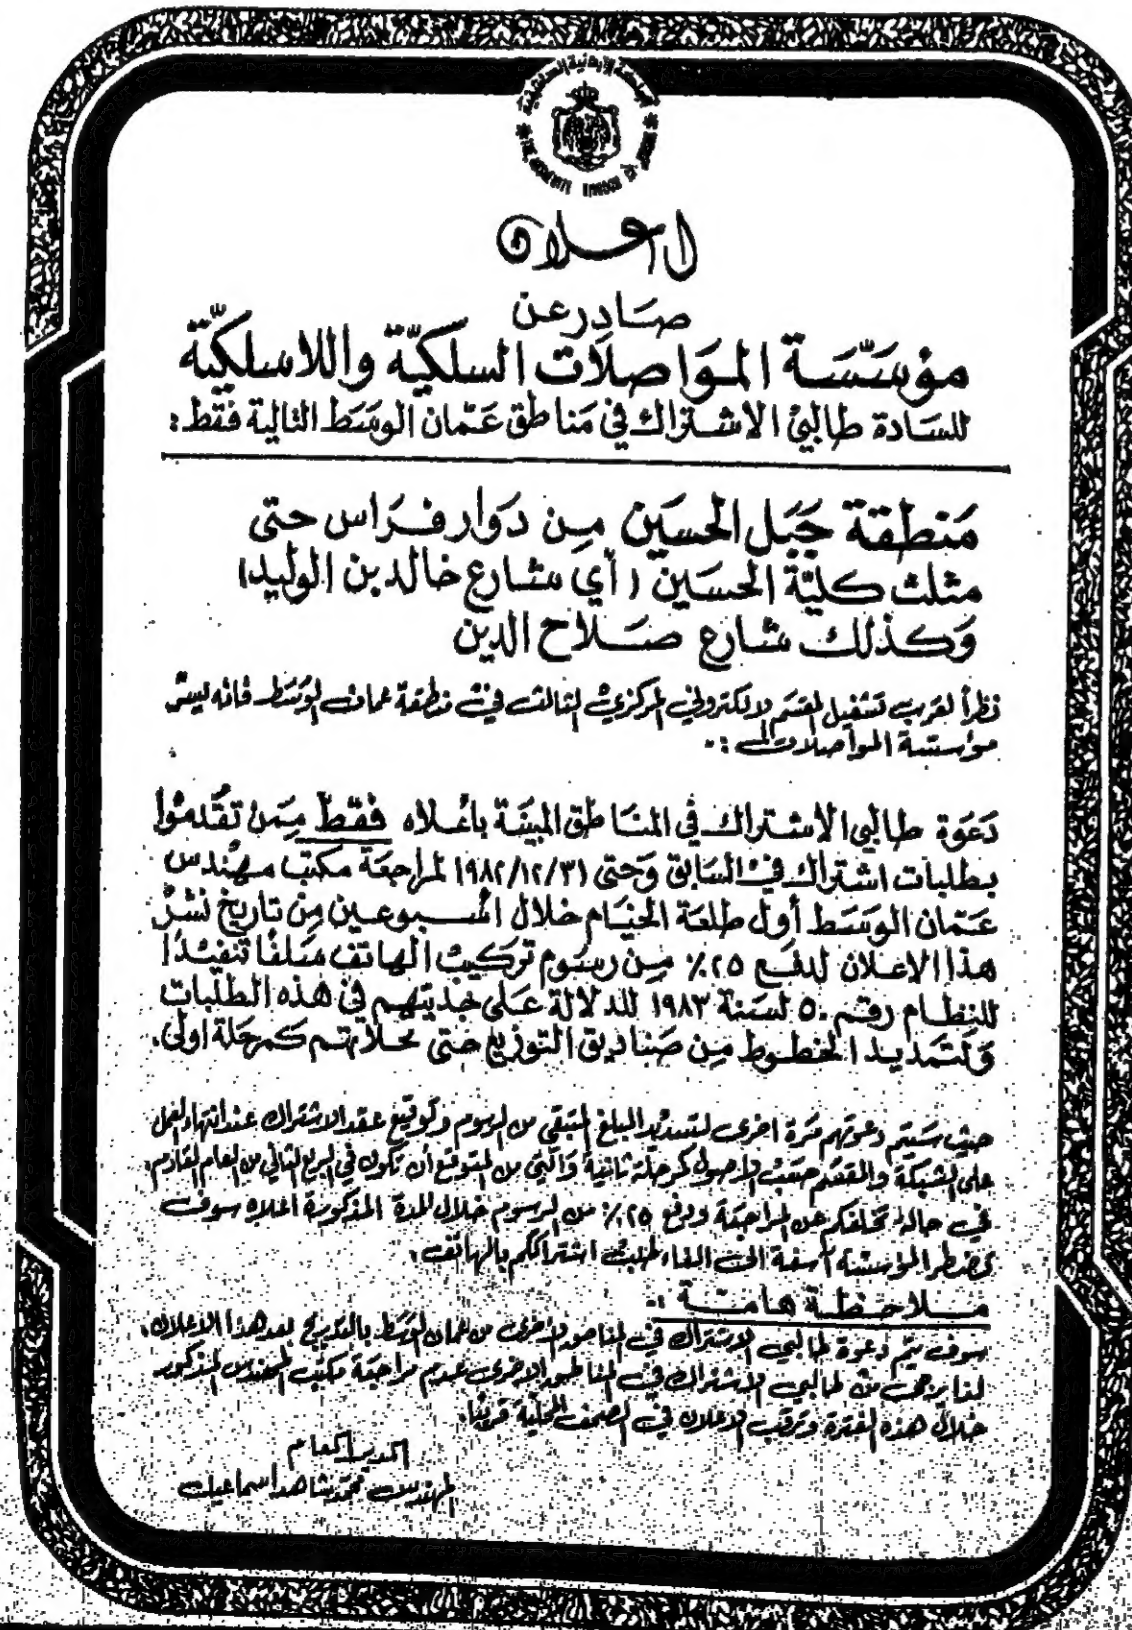 المملكة الأردنية الهاشمية
اعلان
صادر عن
مؤسَّسَة المَواصلات السلكيّة واللاسلكيّة
للسَادة طالبي الاشتراك في مَناطق عَمّان الوسَط التالية فقط :
مَنطقة جَبَل الحسَين مِن دَوار فرَاس حتى
مثلث كليّة الحسَين (أي شارع خالد بن الوليد)
وَكذلك شارع صَلاح الدين
نظراً لقرب تشغيل المقسم الالكتروني المركزي الثالث في منطقة عمان الوسط فانه ليسر
مؤسسة المواصلات :-
دَعوَة طالبي الاشتراك في المنَاطق المبيَنة بأعلاه فقط مِمَن تقدموا
بطلبات اشتراك في السَابق وَحتى ١٩٨٢/١٢/٣١ لمراجعَة مكتب مهندس
عَمّان الوسَط أول طلعَة الخيَام خلال اسبوعين مِن تاريخ نشر
هذا الاعلان لدفع ٢٥٪ مِن رسوم تركيب الهاتف سَلفًا تنفيذًا
للنظام رقم ٥٠ لسَنة ١٩٨٣ للدلالة عَلى جديتهم في هذه الطلبات
وَلتمديد الخطوط مِن صَناديق التوزيع حتى محلاتهم كمرحَلة اولى .
حيث سَيتم دعوتهم مَرة اخرى لتسديد المبلغ المتبقي من الرسوم وتوقيع عقد الاشتراك عند انتهاء العمل
على الشبكة والمقسم حسب الاصول كمرحلة ثانية وَالتي من المتوقع أن تكون في الربع الثاني من العام القادم
في حالة تخلفكم عن المراجعة ودفع ٢٥٪ من الرسوم خلال المدة المذكورة اعلاه سوف
تضطر المؤسسة آسفة الى الغاء طلب اشتراككم بالهاتف .
مـلاحظـة هامـة :-
سوف يتم دعوة طالبي الاشتراك في المناطق الاخرى من عمان الوسط بالتدريج بعد هذا الاعلان ،
لذا يرجى من طالبي الاشتراك في المناطق الاخرى عدم مراجعة مكتب المهندس المذكور
خلال هذه الفترة وترقب الاعلان في الصحف المحلية قريبًا .
المدير العام
المهندس محمد شاهد اسماعيل